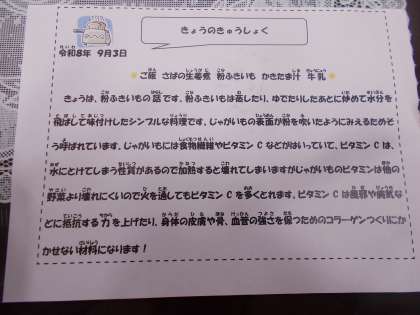 きょうのきゅうしょく
令和8年 9月3日
ご飯 さばの生姜煮 粉ふきいも かきたま汁 牛乳
きょうは、粉ふきいもの話です。粉ふきいもは蒸したり、ゆでたりしたあとに炒めて水分を
飛ばして味付けしたシンプルな料理です。じゃがいもの表面が粉を吹いたようにみえるためそ
う呼ばれています。じゃがいもには食物繊維やビタミンCなどがはいっていて、ビタミンCは、
水にとけてしまう性質があるので加熱すると壊れてしまいますがじゃがいものビタミンは他の
野菜より壊れにくいので火を通してもビタミンCを多くとれます。ビタミンCは風邪や病気な
どに抵抗する力を上げたり、身体の皮膚や骨、血管の強さを保つためのコラーゲンつくりにか
かせない材料になります！